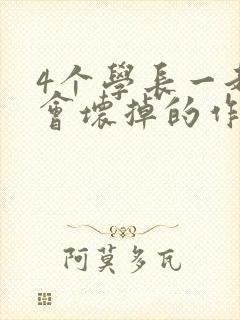 4个學長一
會壞掉的作
阿莫多瓦